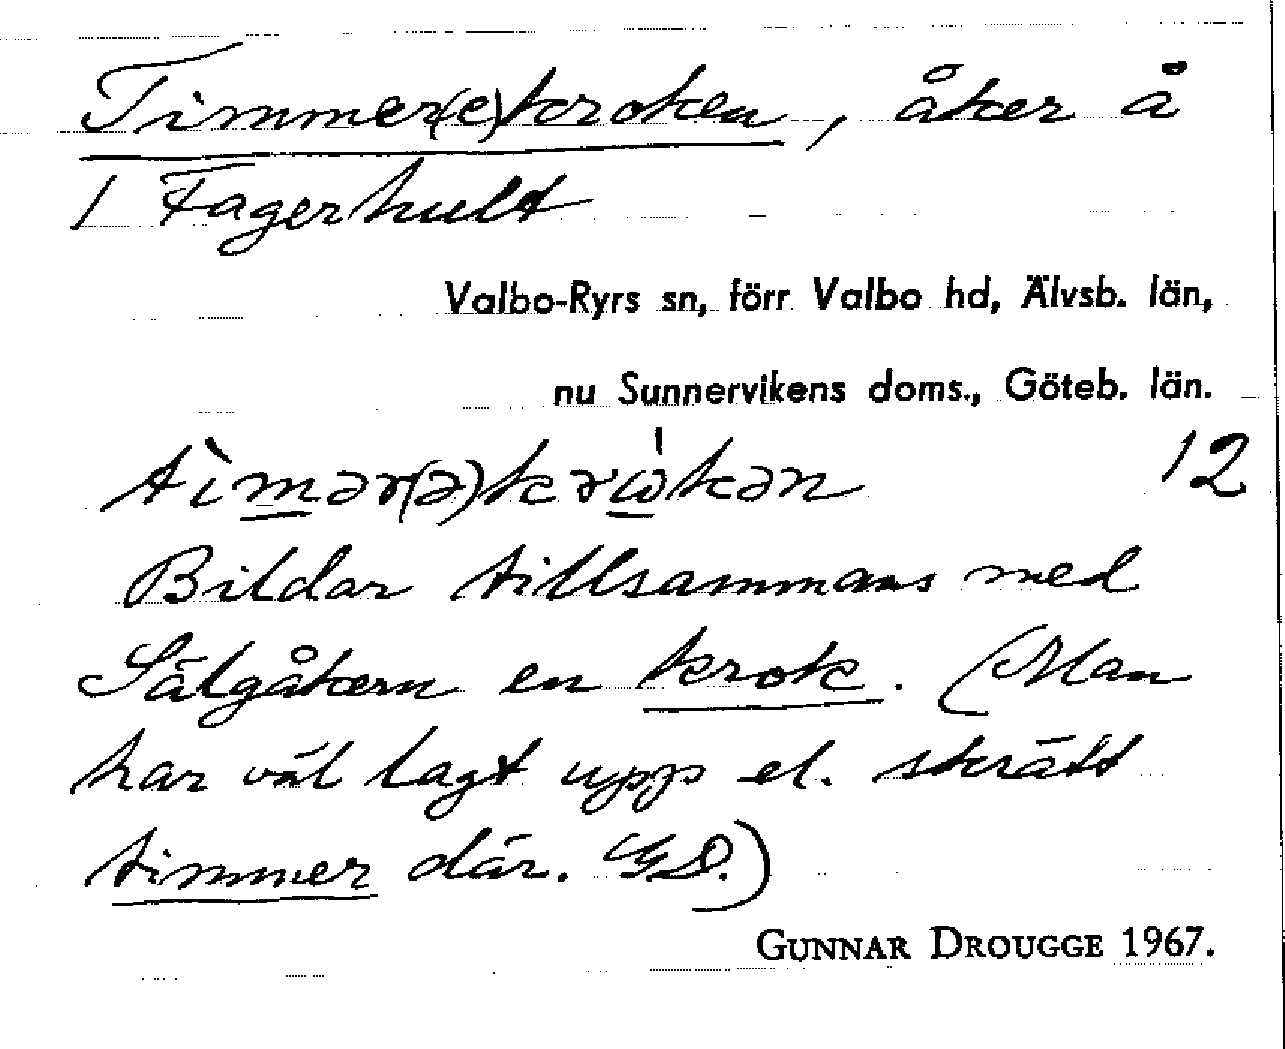 Timmer(e)kroken, åker å
1 Fagerhult
Valbo-Ryrs sn, förr Valbo hd, Älvsb. län,
nu Sunnervikens doms., Göteb. län.
tìmər(ə)krω̍kən 12
Bildar tillsammans med
Sälgåkern en krok. (Man
har väl lagt upp el. skrätt
timmer där. GD.)
GUNNAR DROUGGE 1967.